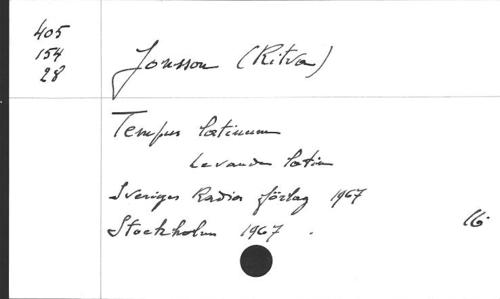 405
154
28
Jonsson (Ritva)
Tempus latinum
Levande latin
Sveriges Radios förlag 1967
Stockholm 1967.
16°